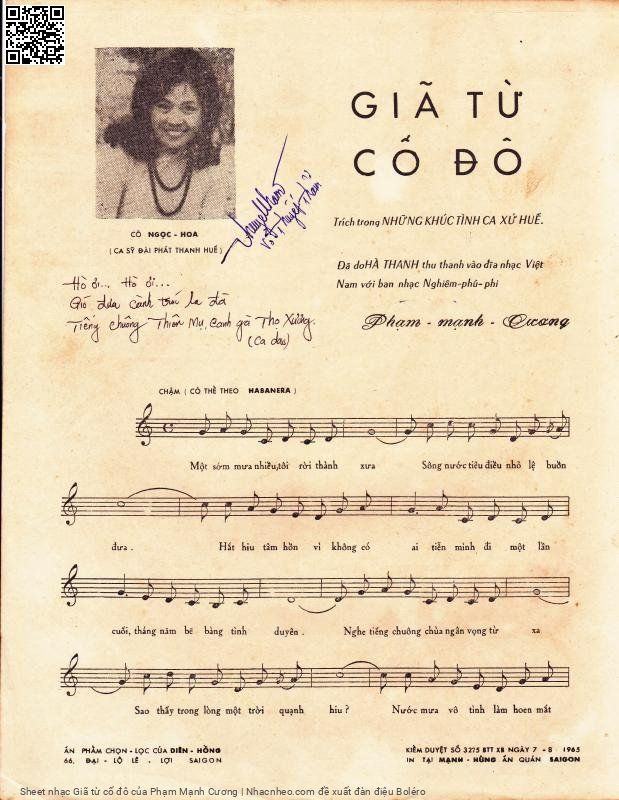 GIÃ TỪ
CỐ ĐÔ
CÔ NGỌC - HOA
( CA SỸ ĐÀI PHÁT THANH HUẾ )
Trích trong NHỮNG KHÚC TÌNH CA XỨ HUẾ.
Đã do HÀ THANH thu thanh vào đĩa nhạc Việt
Nam với ban nhạc Nghiêm-phú-phi
Phạm - mạnh - Cương
Hò ơi... Hò ơi...
Gió đưa cành trúc la đà
Tiếng chuông Thiên Mụ, canh gà Thọ Xương.
(Ca dao)
CHẬM ( CÓ THỂ THEO HABANERA )
Một sớm mưa nhiều,tôi rời thành xưa Sông nước tiêu điều nhỏ lệ buồn
đưa . Hắt hiu tâm hồn vì không có ai tiễn mình đi một lần
cuối, tháng năm bẽ bàng tình duyên . Nghe tiếng chuông chùa ngân vọng từ xa
Sao thấy trong lòng một trời quạnh hiu ? Nước mưa vô tình làm hoen mắt
ẤN PHẨM CHỌN - LỌC CỦA DIÊN - HỒNG
66, ĐẠI - LỘ LÊ . LỢI SAIGON
KIỂM DUYỆT SỐ 3275 BTT XB NGÀY 7 - 8 - 1965
IN TẠI MẠNH - HÙNG ẤN QUÁN SAIGON
Sheet nhạc Giã từ cố đô của Phạm Mạnh Cương | Nhacnheo.com đề xuất đàn điệu Boléro